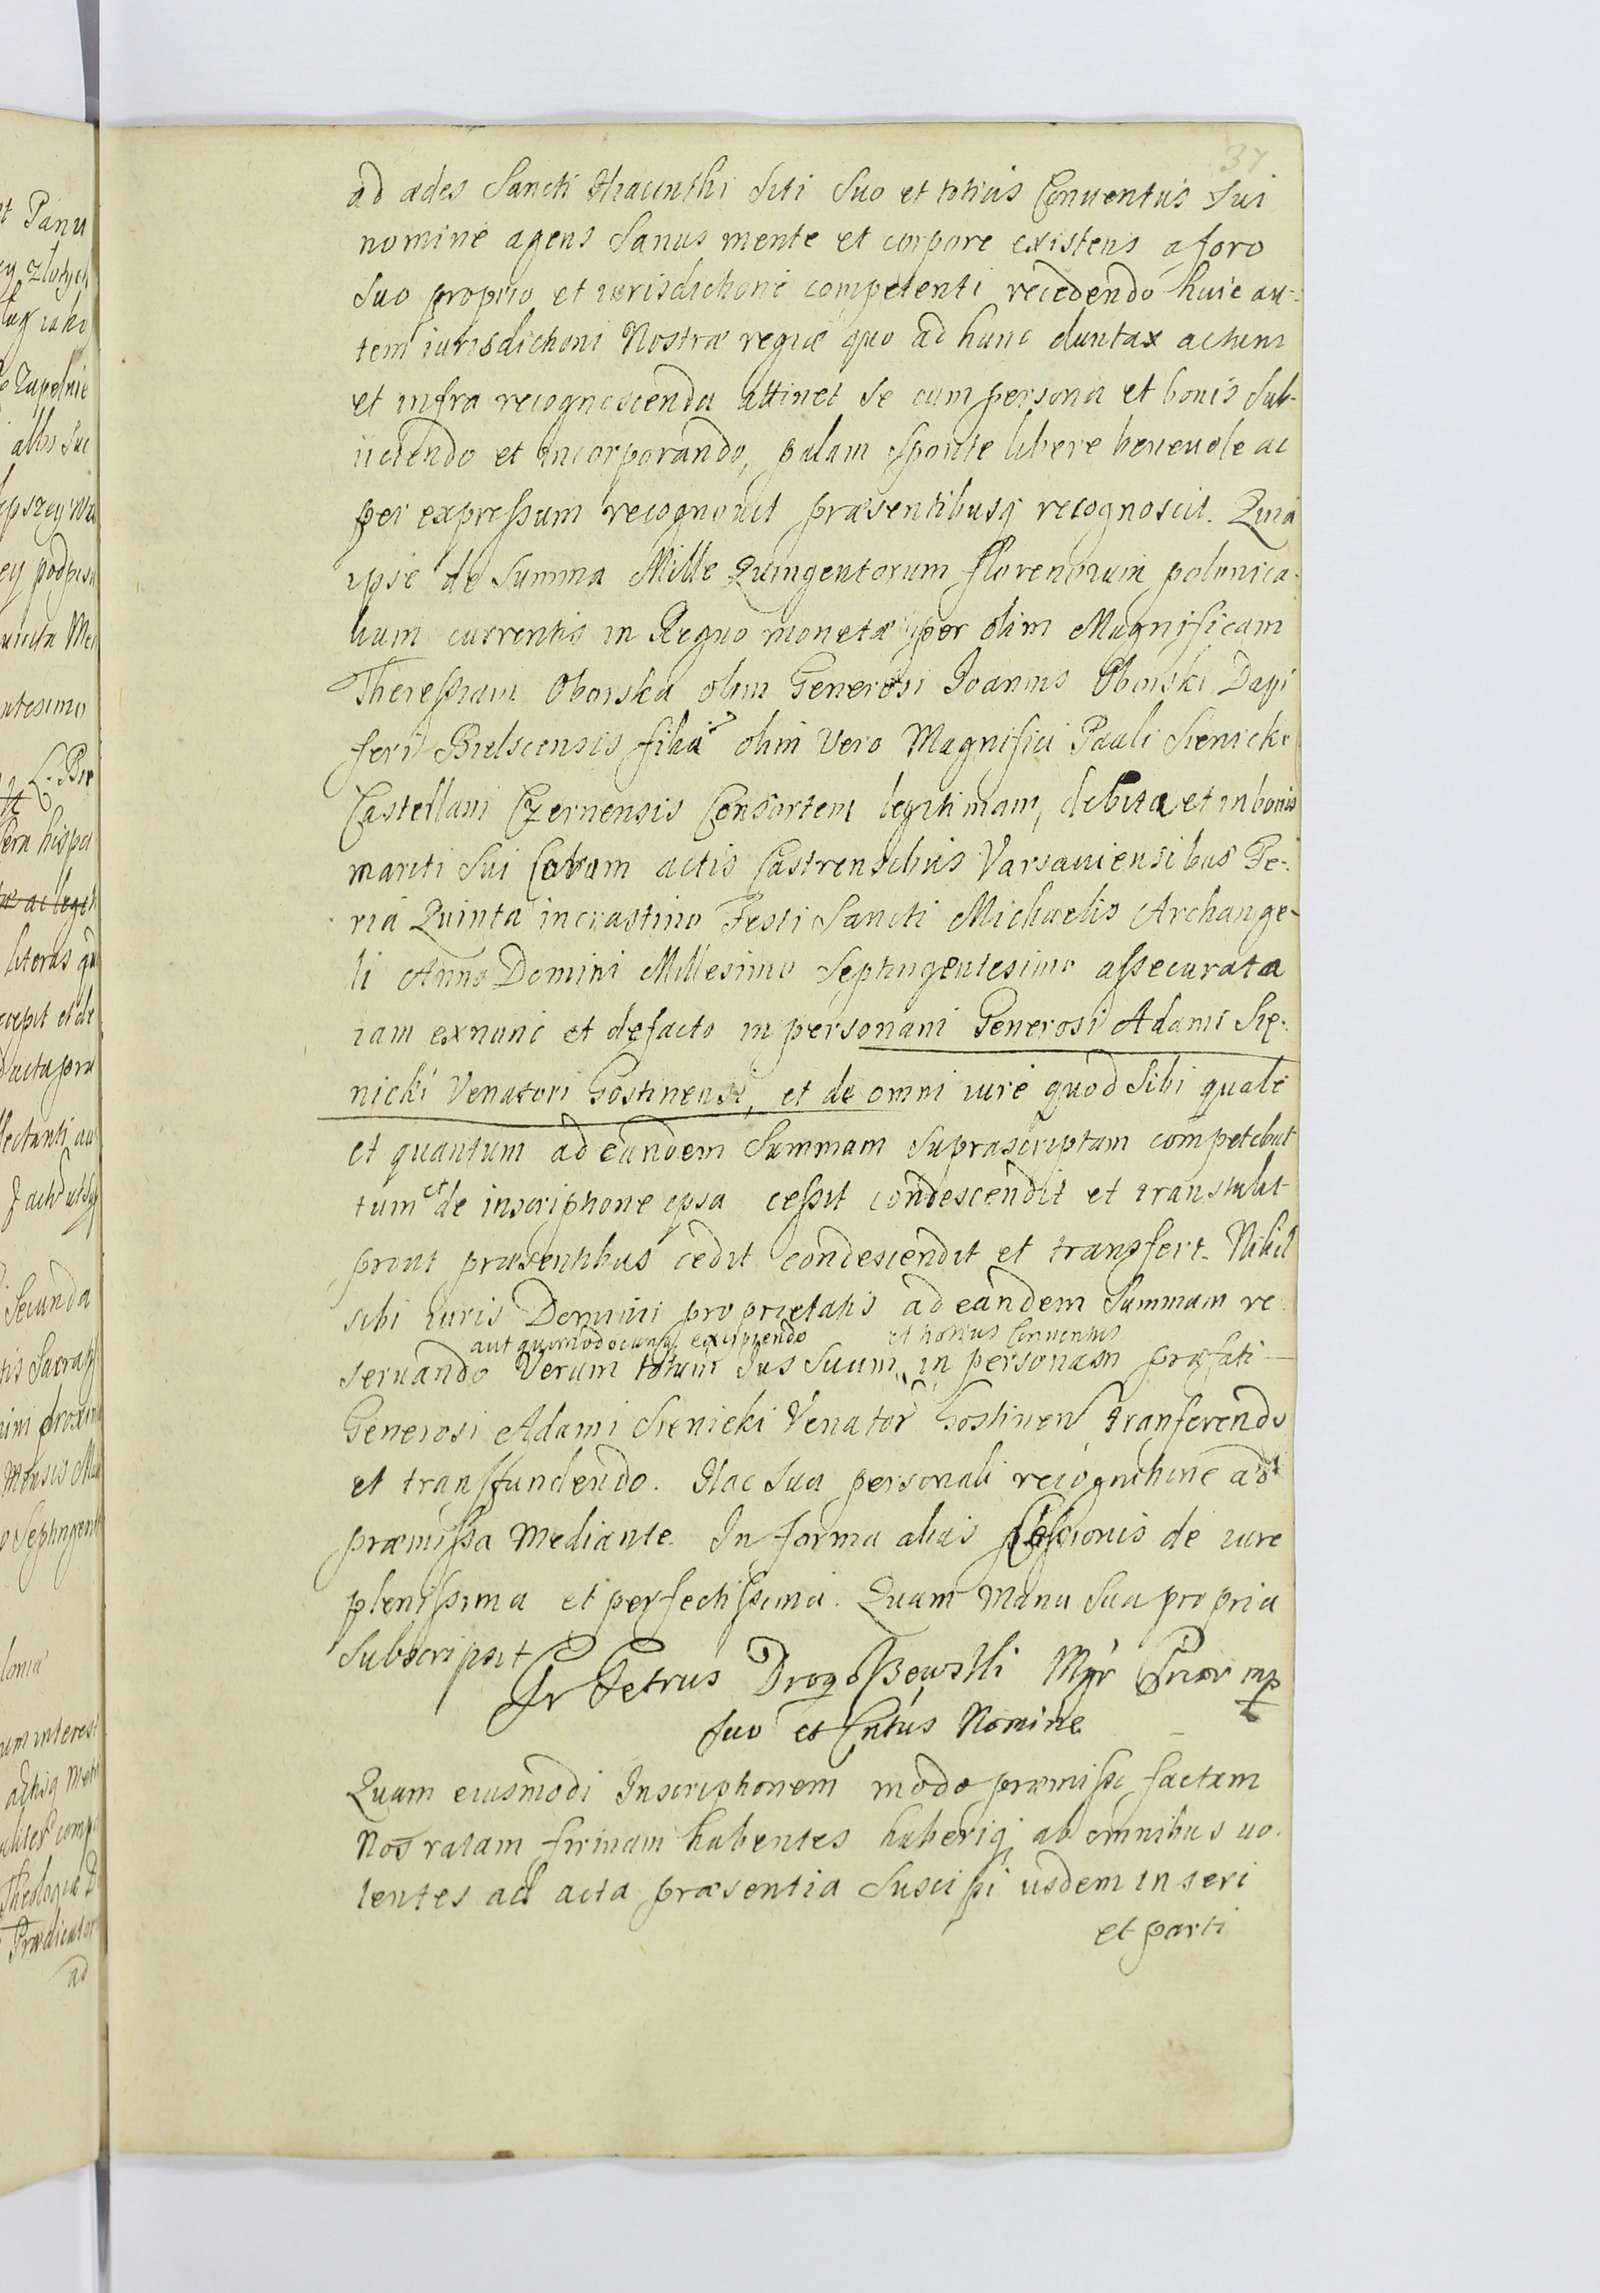 37
ad ædes Sancti Hiacinthi siti suo et totius Conventus sui
nomine agens sanus mente et corpore existens a foro
suo proprio et iurisdictione competenti recedendo huic au-
tem iurisdictioni Nostræ regiæ quo ad hunc duntax actum
et infra recognoscenda attinet se cum persona et bonis sub-
iiciendo et incorporando, palam sponte libere benevole ac
per expressum recognovit præsentibusq recognoscit. Quia
ipse de summa Mille Quingentorum florenorum polonica-
lium currentis in Regno monetæ per olim Magnificam
Theressiam Oborska olim Generosi Joannis Oborski Dapi
feri Bielscensis filia olim vero Magnifici Pauli Sienicki
Castellani Czernensis Consortem legitimam, debita et in bonis
mariti sui Coram actis Castrensibus Varsaviensibus Fe-
ria Quinta in crastino Festi Sancti Michaelis Archange-
li Anno Domini Millesimo Septingentesimo assecurata
iam exnunc et defacto in personam Generosi Adami Sie-
nicki Venatori Gostinensi, et de omni iure quod sibi quale
et quantum ad eandem Summam suprascriptam competebat
tum et de inscriptione ipsa cessit condescendit et transtulit
prout præsentibus cedit condescendit et transfert. Nihil
sibi iuris Dominii proprietatis ad eandem Summam re
aut quomodocunq excipiendo et totius Conventus
servando Verum totum Jus Suum in personam præfati
Generosi Adami Sienicki Venator Gostinen Tranferendo
et transfundendo. Hac sua personali recognitione ad
præmissa Mediante. In forma alias Cessionis de iure
plenissima et perfectissima. Quam Manu sua propria
subscripsit
Fr Petrus Drogoszewski Mgr Prior mp
suo et Cntus Nomine
Quam eiusmodi Inscriptionem modo præmisso factam
Nos ratam firmam habentes haberiq ab omnibus vo-
lentes ad acta præsentia suscipi iisdem inseri
et parti